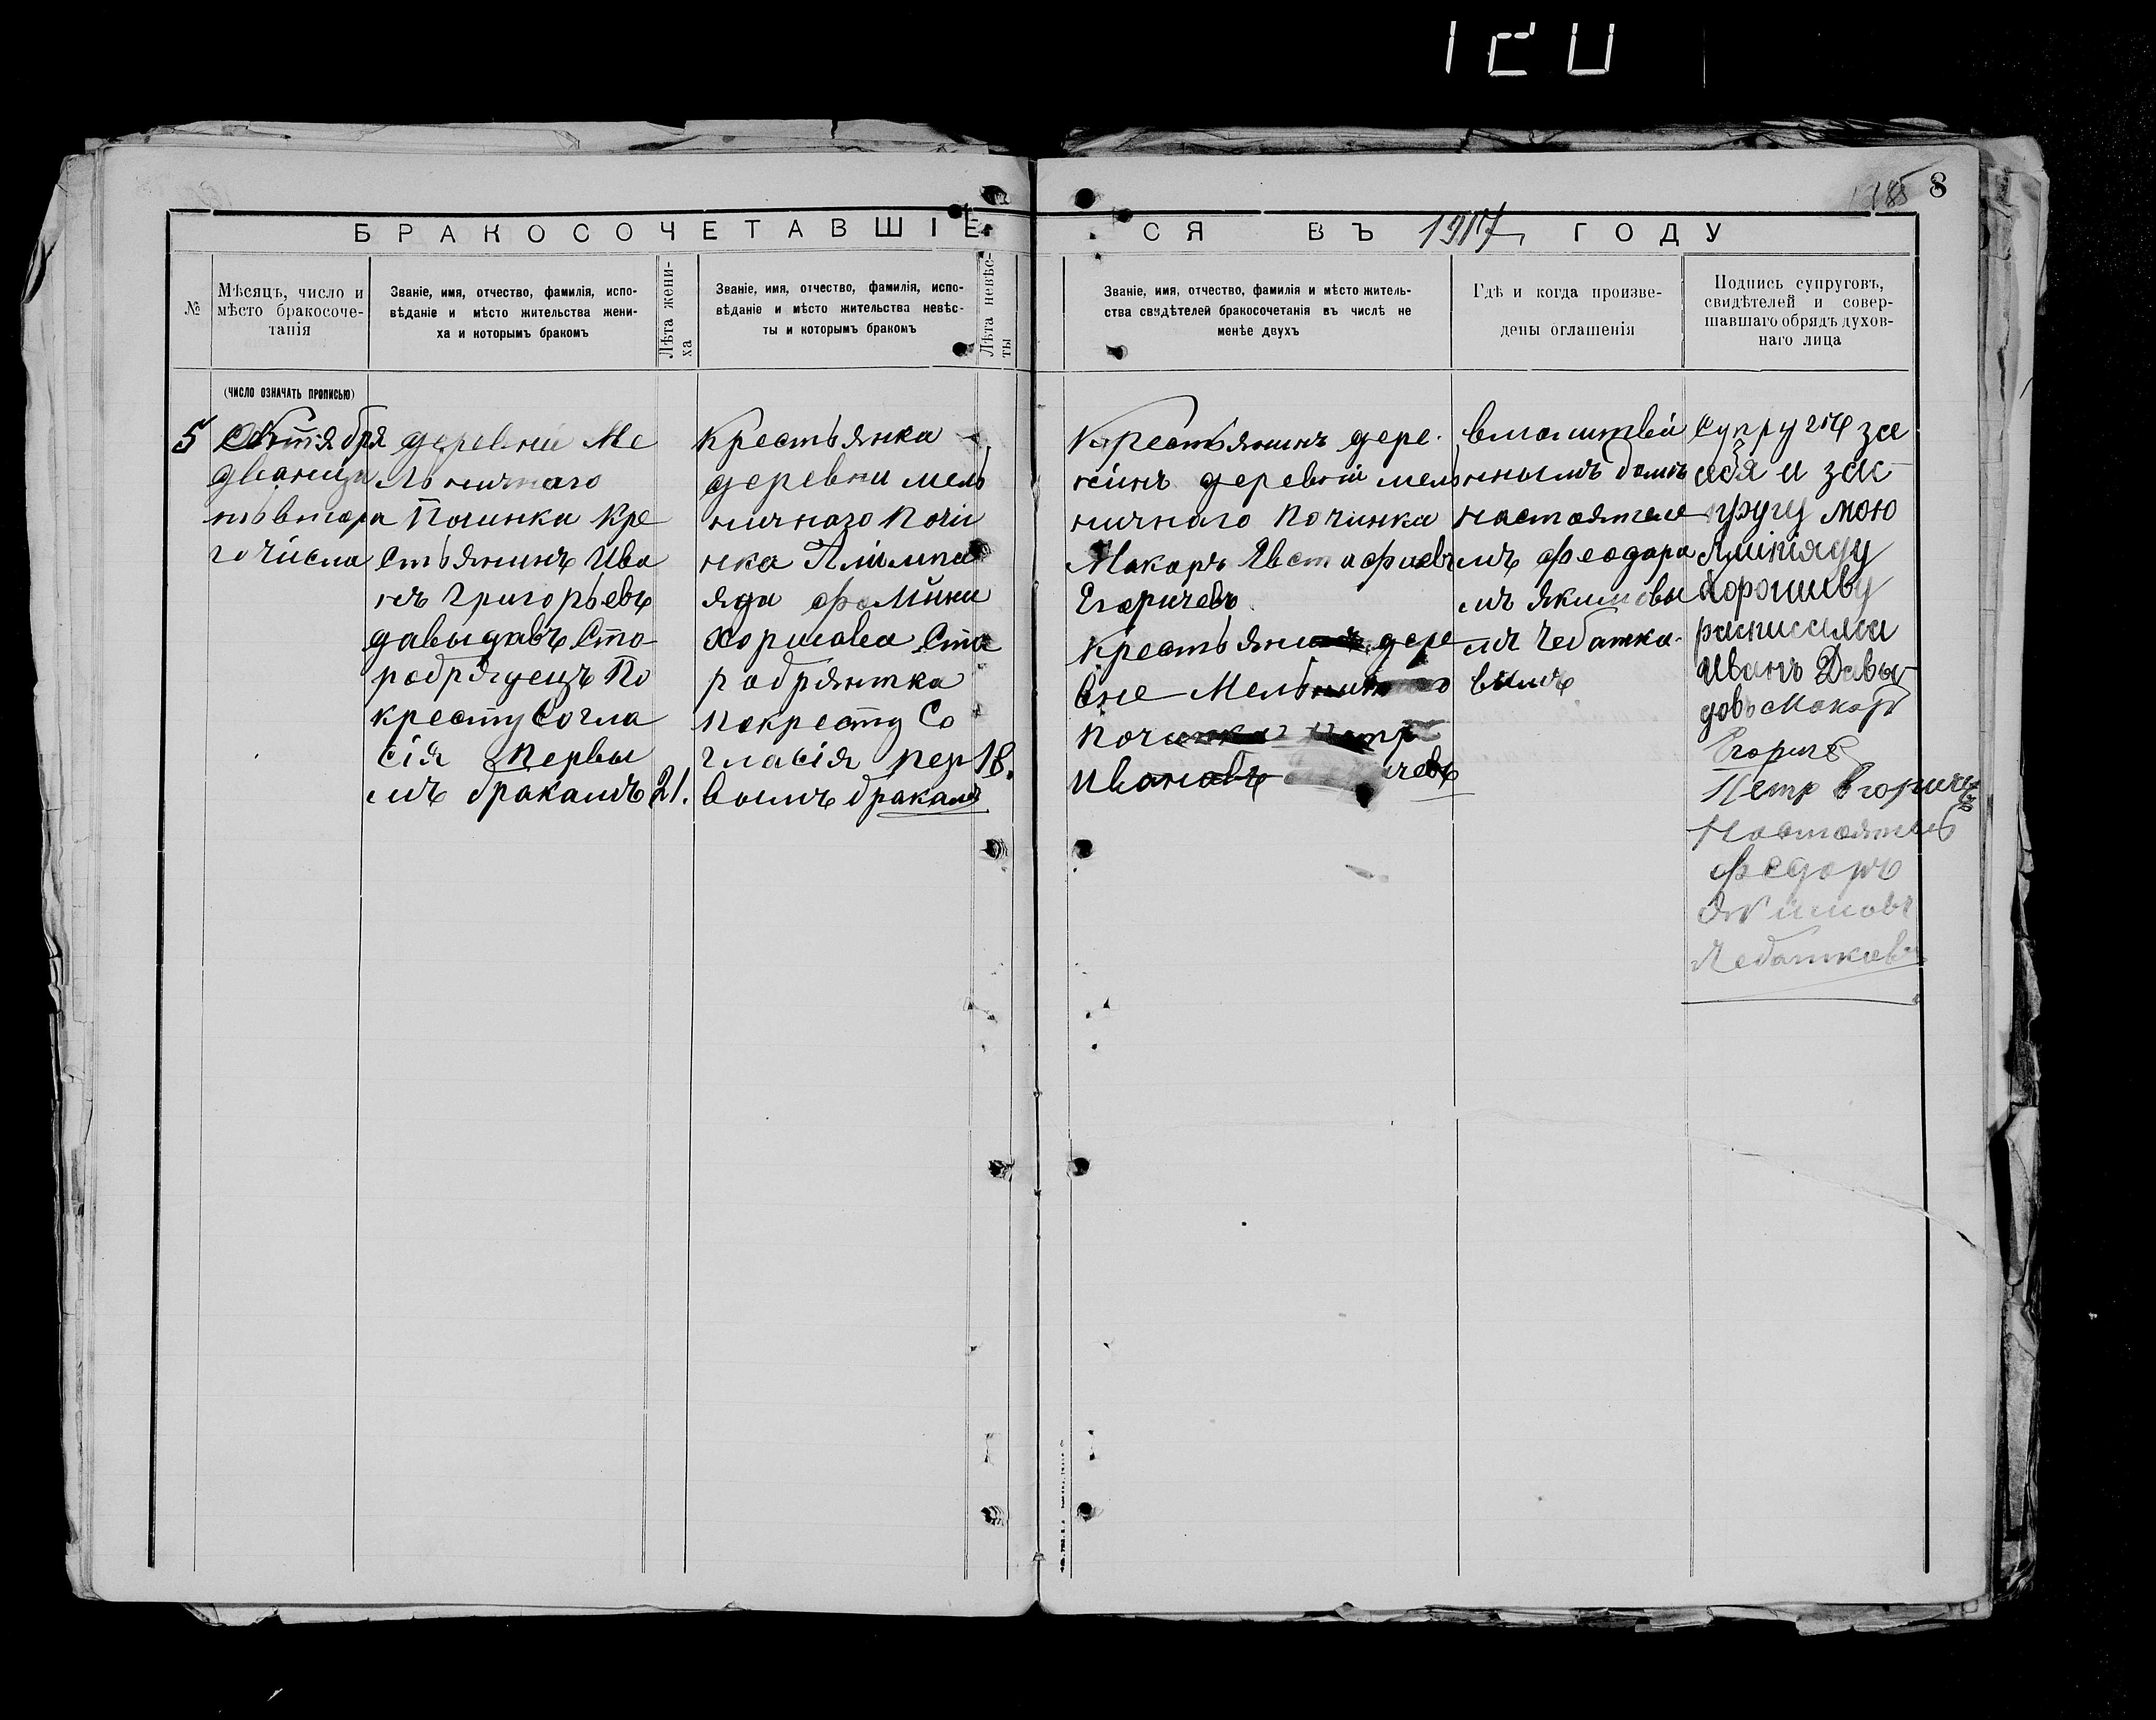 8
БРАКОСОЧЕТАВШІЕСЯ ВЪ 1917 ГОДУ
№
Мѣсяцъ, число и
мѣсто бракосоче-
танія
Званіе, имя, отчество, фамилія, испо-
вѣданіе и мѣсто жительства жени-
ха и которымъ бракомъ
Лѣта жени-
ха
Званіе, имя, отчество, фамилія, испо-
вѣданіе и мѣсто жительства невѣс-
ты и которымъ бракомъ
Лѣта невѣс-
ты
Званіе, имя, отчество, фамилія и мѣсто житель-
ства свидѣтелей бракосочетанія въ числѣ не
менѣе двухъ
Гдѣ и когда произве-
дены оглашенія
Подпись супруговъ,
свидѣтелей и совер-
шавшаго обрядъ духов-
наго лица
(число означать прописью)
5
дванцы
ть втора
го числа
деревни Ме
льничнаго
Починка Кре
стьянинъ Ива
нъ Григорьевъ
давыдавъ Ста
робрядецъ По
кресту Согла
сія Первы
мъ бракамъ
21.
Крестьянка
деревни мель
ничнаго почи
нка
яда
Ста
робрянтка
покресту Со
гласія пер
вымъ бракамъ
18.
Крестьянинъ дере
деревни мель
ничнаго Починка
Макаръ Евстафиевъ
Егоричевъ
Крестьянинъ дере
вне
Ивановъ
вмолитвен
нымъ домъ
настоятеле
мъ феодара
мъ якимовы
мъ Чебатка
вымъ
Супругъ за
себя и за
супругу мою
расписался
Иванъ Давы
довъ Макаръ
Егоричев
Петр Егоричев
Настоятель
Федоръ
Якимовъ
Чебатковъ